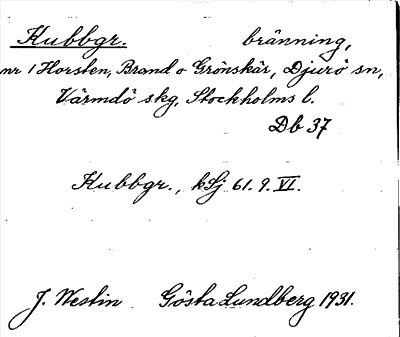 Kubbgr. bränning,
nr 1 Horsten, Brand o Grönskär, Djurö sn,
Värmdö skg, Stockholms l.
Db 37
Kubbgr., kSj 61. 9. VI.
J. Westin Gösta Lundberg 1931.